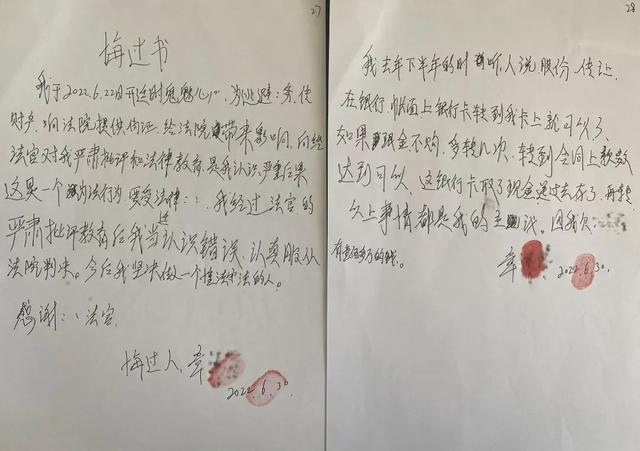 27
悔过书
我于2022.6.22日开庭时鬼魅心心,为逃避:务,使
财产,向法院提供伪证,给法院带来影响,向经
法官对我严肃批评和法律教育,是我认识严重后果
这是一个违法行为要受法律::,我经过法官的
严肃批评教育后我当这认识错误,认真服从
法院判决。今后我坚决做一个懂法守法的人。
感谢:、法官
悔过人,章
2022.6.30
28
我去年下半年的时 听人说股份 传让
在银行,帐面上银行卡转到我卡上就可以了
如果现金不够,多转几次,转到合同上款数
达到可以,这银行卡取了现金 过去存了,再转
以上事情都是我的主 识,因我欠
有 的钱。
章
2022.6.30.